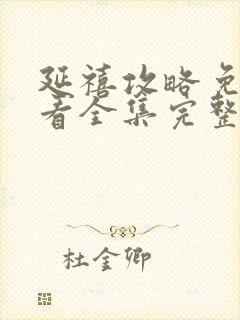 延禧攻略免
看全集完整
杜金卿